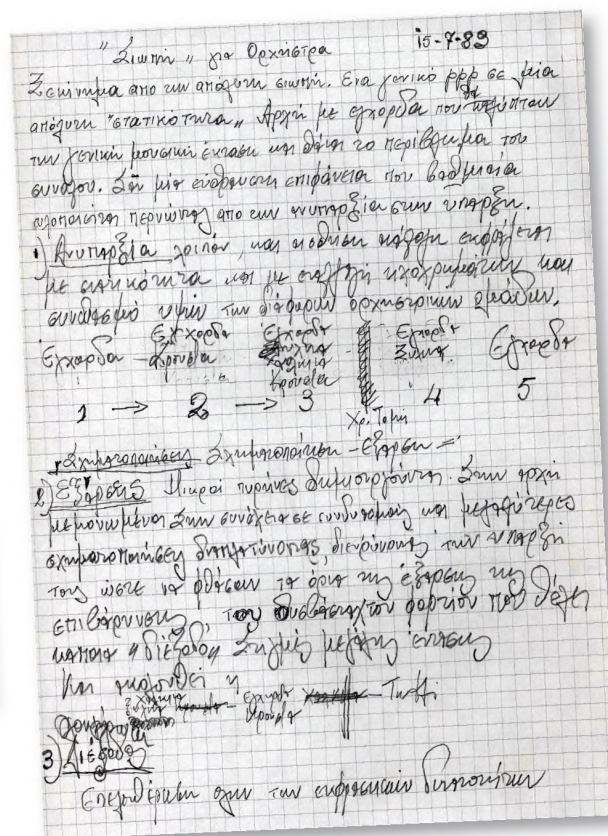 "Σιωπή" για Ορχήστρα 15-7-89
Ξεκίνημα απο την απόλυτη σιωπή. Ενα γενικό ppp σε μία
απόλυτη "στατικότητα" Αρχή με έγχορδα που θα καλύπτουν
την γενική μουσική έκταση και θάναι το περίβλημα του
συνόλου. Σαν μία εύθραυστη επιφάνεια που βαθμιαία
υλοποιείται περνώντας απο την ανυπαρξία στην ύπαρξη.
1) Ανυπαρξία λοιπόν, και αισθήση εκφράζεται
με στατικότητα και με εναλλαγή ηχοχρωμάτων και
συνδυασμό υψών των διάφορων ορχηστρικών ομάδων.
Έγχορδα Έγχορδα Έγχορδα Έγχορδα Έγχορδα
Κρουστά χάλκινα Ξύλινα
κρουστά
1 → 2 → 3 4 5
Χρ. Τομή
Σχηματοποίησεις Σχηματοποίηση - Εξάρση =
2) Εξάρσεις Μικροί πυρήνες δημιουργούνται. Στην αρχή
μεμονωμένοι Στην συνέχεια σε συνδυασμούς και μεγαλύτερες
σχηματοποιήσεις διαπλατύνοντας, διευρύνοντας την ύπαρξή
τους ώστε να φθάσουν τα όρια της έξαρσης της
επιβάρυνσης, του δυσβάσταχτου φορτίου που θέλει
κάποια "διέξοδο" Στιγμές μεγάλης έντασης
Και ακολουθεί η
χάλκινα έγχορδα κρουστά Tutti
3) Διέξοδος
Απελευθέρωση όλων των εκφραστικών δυνατοτήτων